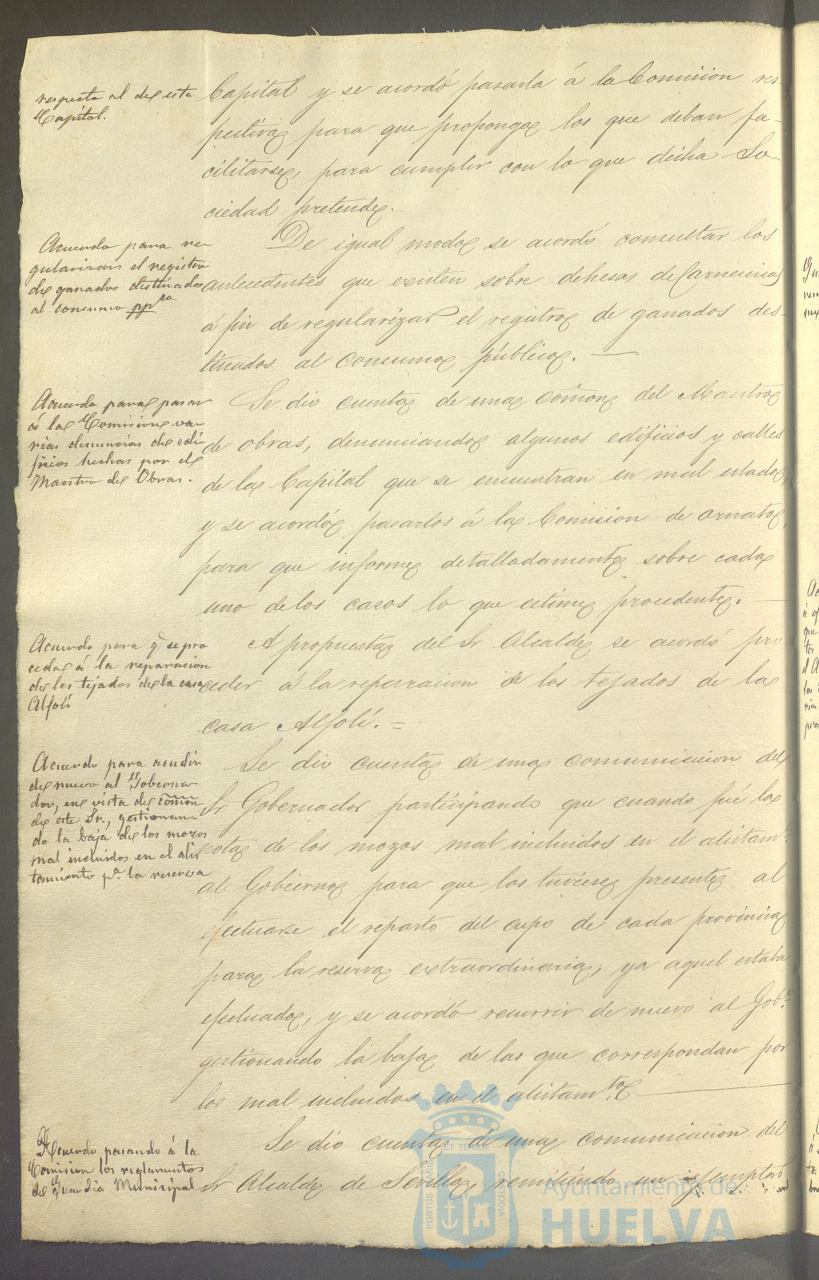 respecto al de esta
Capital.
Capital y se acordó pasarla á la Comision res-
pectiva para que proponga los que deban fa-
cilitarse, para cumplir con lo que dicha So-
ciedad pretende.
Acuerdo para re-
gularizar el registro
de ganados destinados
al consumo ppco
De igual modo se acordó consultar los
antecedentes que existen sobre dehesas de Carnecerias
á fin de regularizar el registro de ganados des-
tinados al consumo público. —
Acuerdo para pasar
á la Comision va-
rias denuncias de edi-
ficios hechas por el
Maestro de Obras.
Se dio cuenta de una comon. del Maestro
de obras, denunciando algunos edificios y calles
de la Capital que se encuentran en mal estado,
y se acordó pasarlos á la Comision de ornato,
para que informe detalladamente sobre cada
uno de los casos lo que estime procedente. —
Acuerdo para q. se pro
ceda á la reparacion
de los tejados de la casa
Alfolí
A propuesta del Sr Alcalde se acordó pro
ceder á la reparacion de los tejados de la
casa Alfolí. =
Acuerdo para acudir
de nuevo al Sr Goberna-
dor, en vista de comon
de este Sr, gestionan-
do la baja de los mozos
mal incluidos en el alis
tamiento pa. la reserva
Se dio cuenta de una comunicacion del
Sr Gobernador participando que cuando fué la
nota de los mozos mal incluidos en el alistamto.
al Gobierno para que los tuviese presente al
efectuarse el reparto del cupo de cada provincia
para la reserva extraordinaria, ya aquel estaba
efectuado, y se acordó recurrir de nuevo al Gobo.
gestionando la baja de los que correspondan por
los mal incluidos en el alistamto. —
Acuerdo pasando á la
Comision los reglamentos
de Guardia Municipal
Se dio cuenta de una comunicacion del
Sr Alcalde de Sevilla, remitiendo un ejemplar
Ayuntamiento de
HUELVA